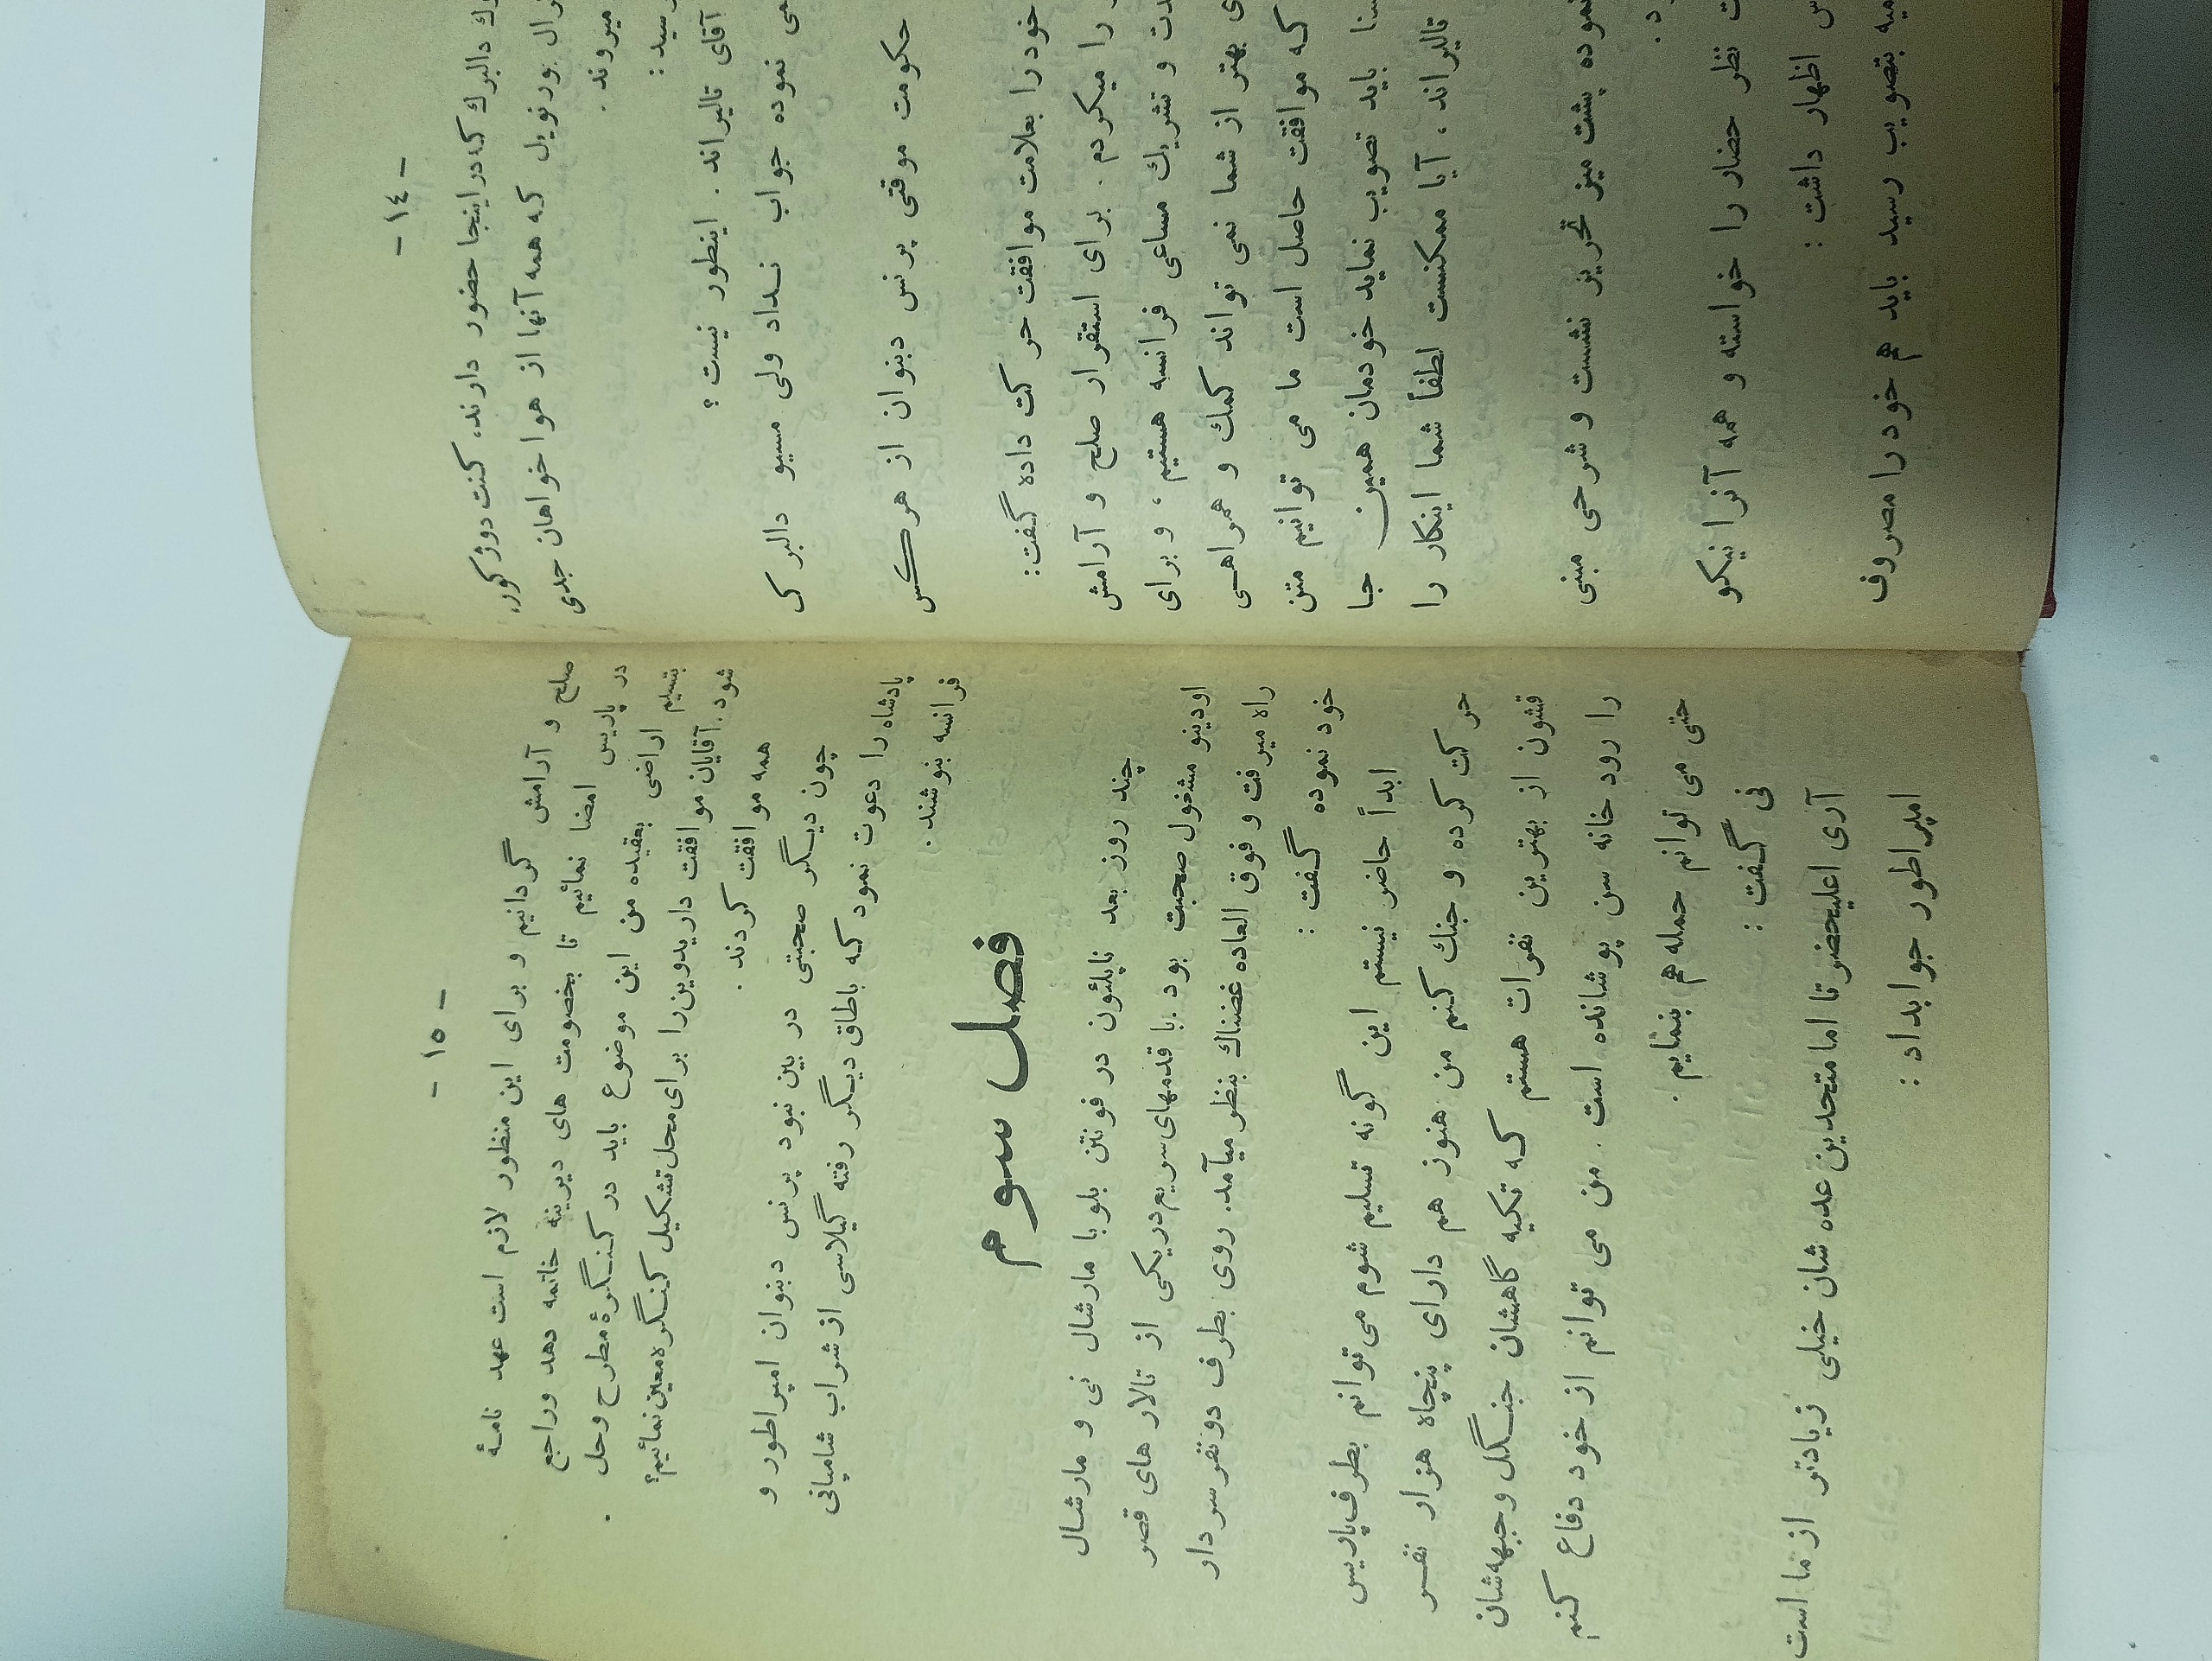 - ١٤ -
دالبرك كه در اینجا حضور دارند، كنت دوژكور،
بورنویل كه همه آنها از هواخواهان جدی
میروند.
سید:
آقای تالیراند. اینطور نیست؟
نموده جواب نداد ولی مسیو دالبرك
حكومت موقتی پرنس دبنوان از هر كس
خود را بعلامت موافقت حركت داده گفت:
را میكردم. برای استقرار صلح و آرامش
و تشریك مساعی فرانسه هستیم، و برای
بهتر از شما نمی تواند كمك و همراهی
كه موافقت حاصل است ما می توانیم متن
باید تصویب نماید خودمان همین جا
تالیراند، آیا ممكنست لطفاً شما اینكار را
نموده پشت میز تحریر نشست و شرحی مبنی
د.
نظر حضار را خواسته و همه آنرا نیكو
اظهار داشت:
بتصویب رسید باید هم خود را مصروف
- ١٥ -
صلح و آرامش گردانیم و برای این منظور لازم است عهد نامهٔ
در پاریس امضا نمائیم تا بخصومت های دیرینه خاتمه دهد وراجع
بتسلیم اراضی بعقیده من این موضوع باید در كنگرهٔ مطرح وحل
شود. آقایان موافقت دارید وین را برای محل تشكیل كنگره معین نمائیم؟
همه موافقت كردند.
چون دیگر صحبتی در بین نبود پرنس دبنوان امپراطور و
پادشاه را دعوت نمود كه باطاق دیگر رفته گیلاسی از شراب شامپانی
فرانسه بنوشند.
فصل سوم
چند روز بعد ناپلئون در فونتن بلو با مارشال نی و مارشال
اودینو مشغول صحبت بود. با قدمهای سریع در یكی از تالار های قصر
راه میرفت و فوق العاده غضبناك بنظر میآمد. روی بطرف دو نفر سردار
خود نموده گفت:
ابداً حاضر نیستم این گونه تسلیم شوم می توانم بطرف پاریس
حركت كرده و جنك كنم من هنوز هم دارای پنجاه هزار نفر
قشون از بهترین نفرات هستم كه تكیه گاهشان جنگل وجبهه شان
را رود خانه سن پوشانده است. من می توانم از خود دفاع كنم
حتی می توانم حمله هم بنمایم.
نی گفت:
آری اعلیحضرتا اما متحدین عده شان خیلی زیادتر از ما است
امپراطور جوابداد: